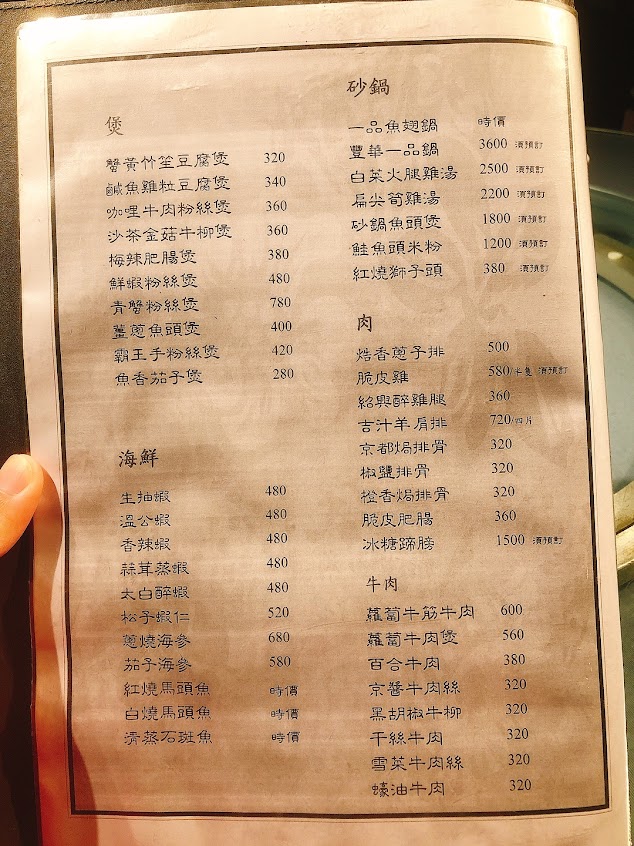 煲
蟹黃竹笙豆腐煲 320
鹹魚雞粒豆腐煲 340
咖哩牛肉粉絲煲 360
沙茶金菇牛柳煲 360
梅辣肥腸煲 380
鮮蝦粉絲煲 480
青蟹粉絲煲 780
薑蔥魚頭煲 400
霸王手粉絲煲 420
魚香茄子煲 280
海鮮
生抽蝦 480
溫公蝦 480
香辣蝦 480
蒜茸蒸蝦 480
太白醉蝦 480
松子蝦仁 520
蔥燒海參 680
茄子海參 580
紅燒馬頭魚 時價
白燒馬頭魚 時價
清蒸石斑魚 時價
砂鍋
一品魚翅鍋 時價
豐華一品鍋 3600 須預訂
白菜火腿雞湯 2500 須預訂
扁尖筍雞湯 2200 須預訂
砂鍋魚頭煲 1800 須預訂
鮭魚頭米粉 1200 須預訂
紅燒獅子頭 380 須預訂
肉
焅香蔥子排 500
脆皮雞 580/半隻 須預訂
紹興醉雞腿 360
吉汁羊肩排 720/四片
京都焗排骨 320
椒鹽排骨 320
橙香焗排骨 320
脆皮肥腸 360
冰糖蹄膀 1500 須預訂
牛肉
蘿蔔牛筋牛肉 600
蘿蔔牛肉煲 560
百合牛肉 380
京醬牛肉絲 320
黑胡椒牛柳 320
干絲牛肉 320
雪菜牛肉絲 320
蠔油牛肉 320